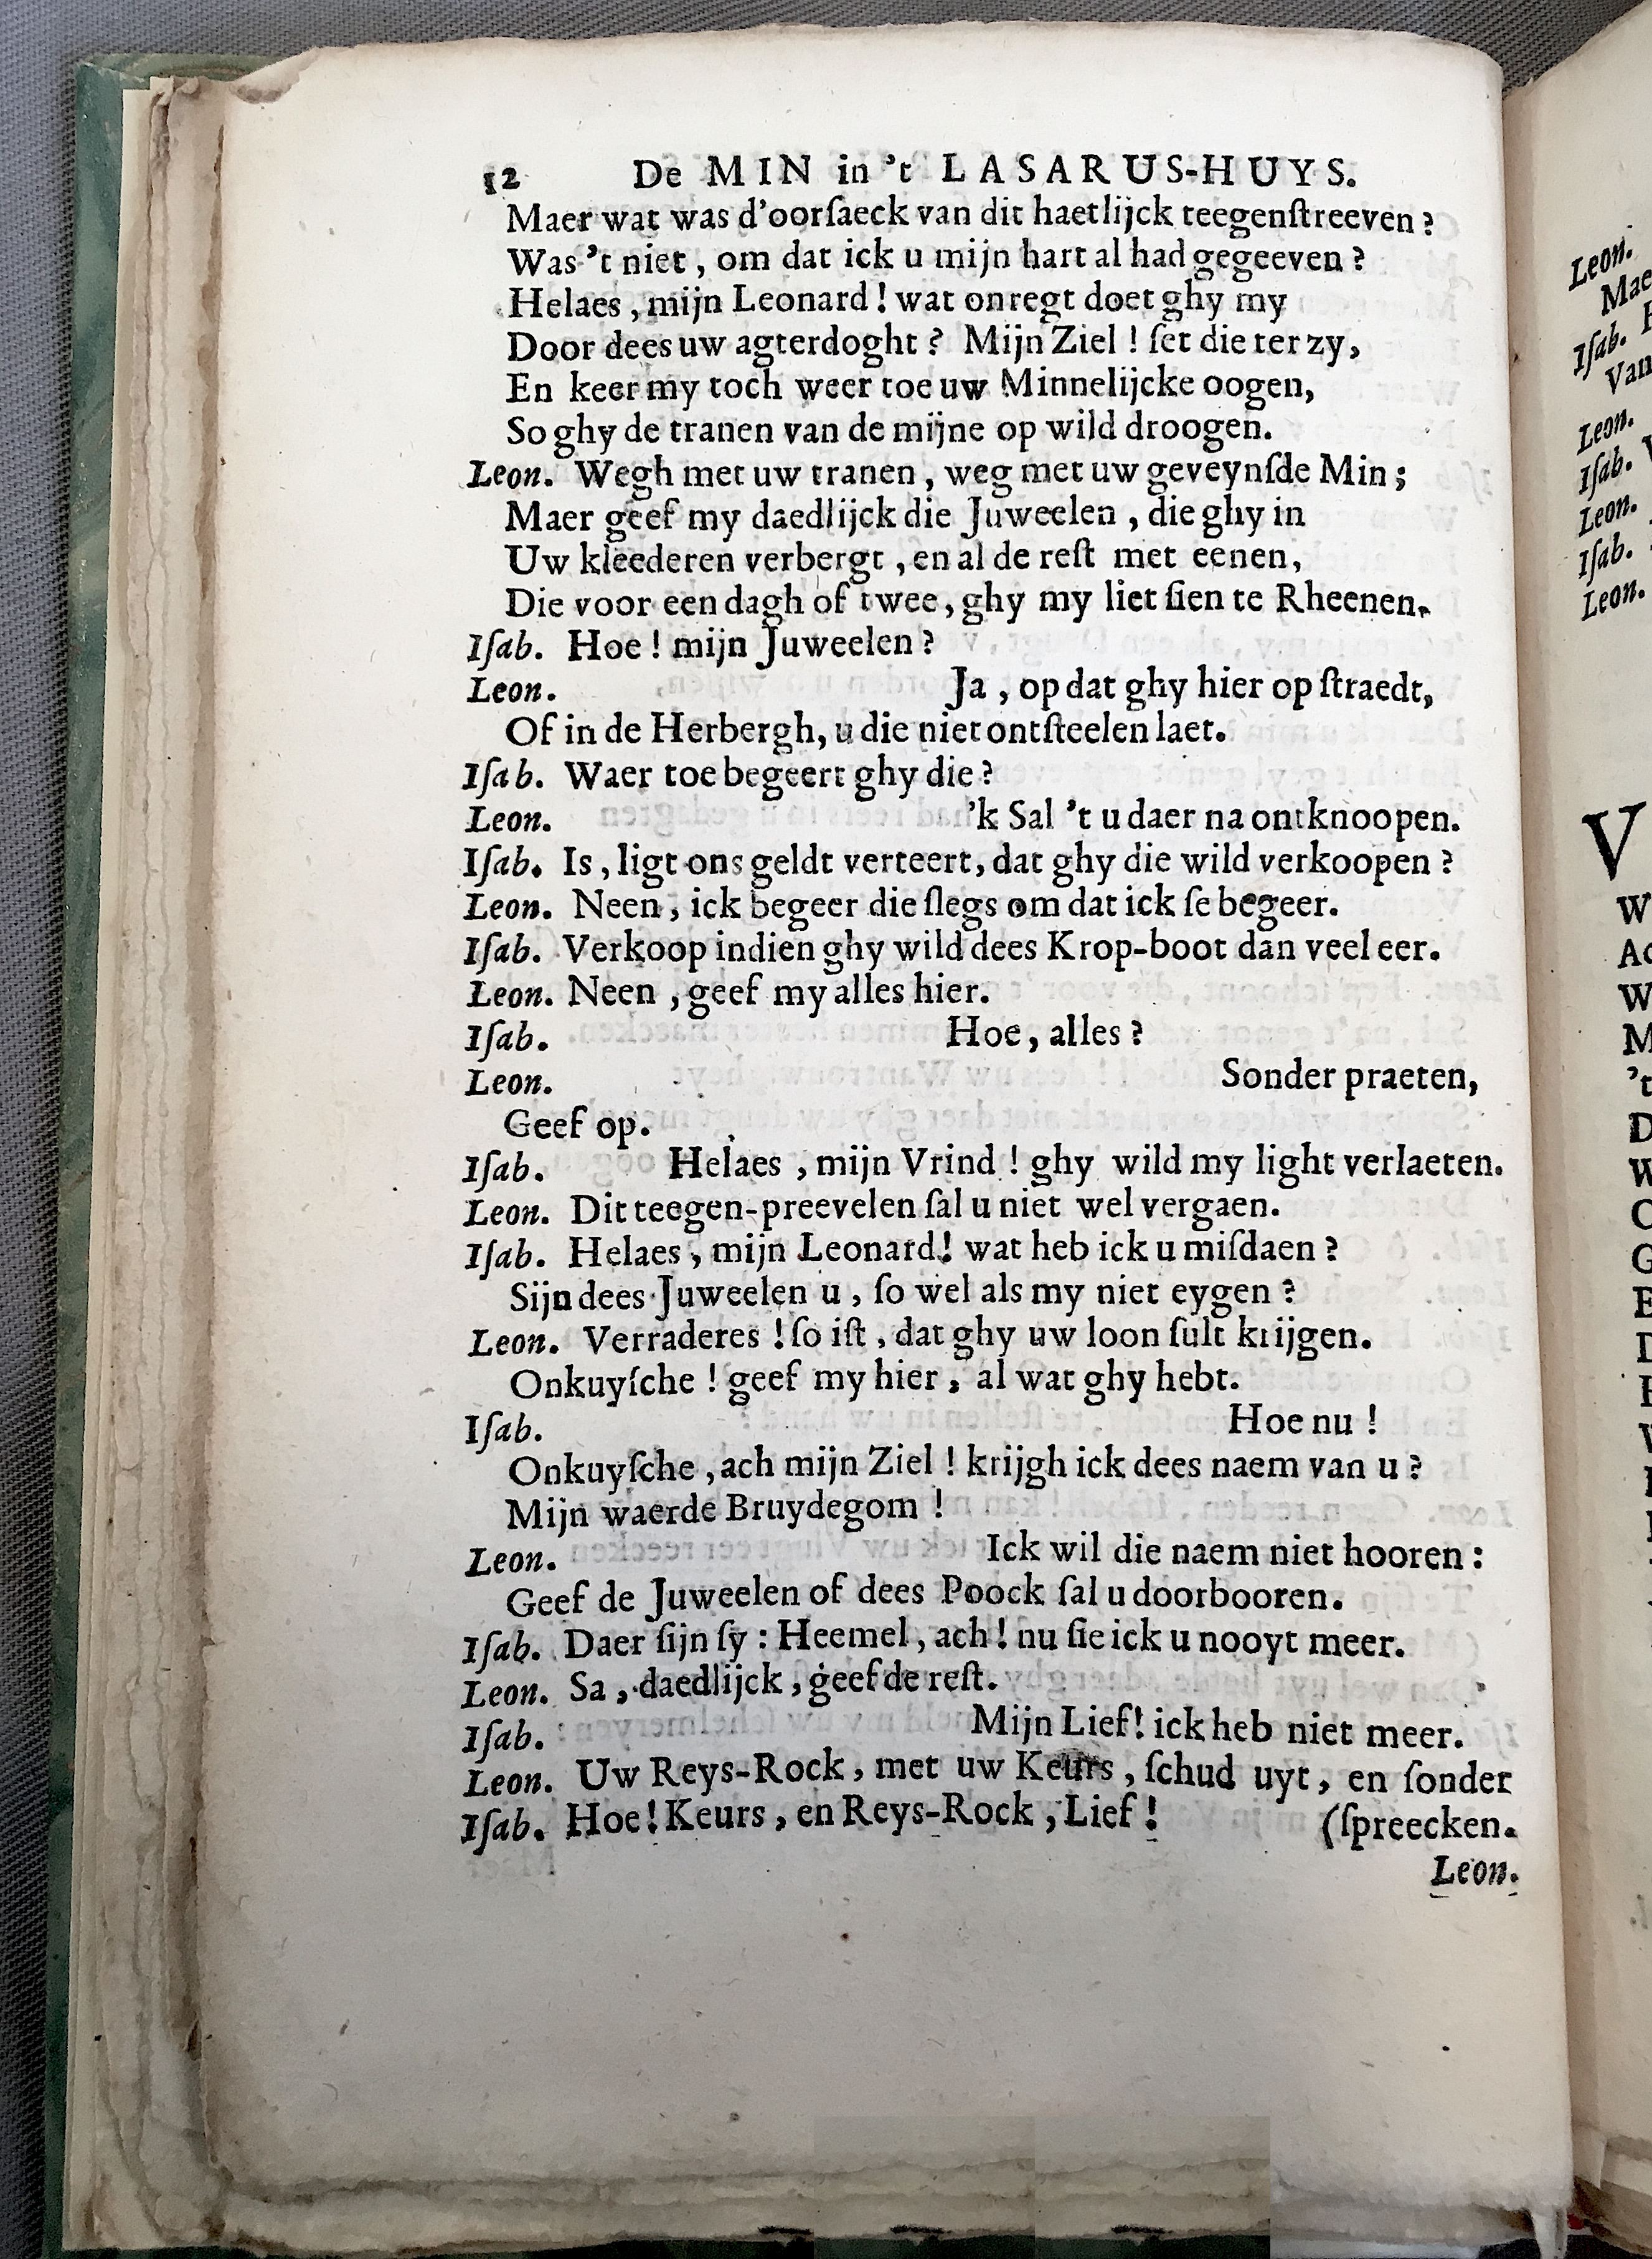 12 De MIN in 't LASARUS-HUYS.
Maer wat was d'oorſaeck van dit haetlijck teegenſtreeven?
Was 't niet, om dat ick u mijn hart al had gegeeven?
Helaes, mijn Leonard! wat onregt doet ghy my
Door dees uw agterdoght? Mijn Ziel! ſet die ter zy,
En keer my toch weer toe uw Minnelijcke oogen,
So ghy de tranen van de mijne op wild droogen.
Leon. Wegh met uw tranen, weg met uw geveynſde Min;
Maer geef my daedlijck die Juweelen, die ghy in
Uw kleederen verbergt, en al de reſt met eenen,
Die voor een dagh of twee, ghy my liet ſien te Rheenen.
Iſab. Hoe! mijn Juweelen?
Leon. Ja, op dat ghy hier op ſtraedt,
Of in de Herbergh, u die niet ontſteelen laet.
Iſab. Waer toe begeert ghy die?
Leon. 'k Sal 't u daer na ontknoopen.
Iſab. Is, ligt ons geldt verteert, dat ghy die wild verkoopen?
Leon. Neen, ick begeer die ſlegs om dat ick ſe begeer.
Iſab. Verkoop indien ghy wild dees Krop-boot dan veel eer.
Leon. Neen, geef my alles hier.
Iſab. Hoe, alles?
Leon. Sonder praeten,
Geef op.
Iſab. Helaes, mijn Vrind! ghy wild my light verlaeten.
Leon. Dit teegen-preevelen ſal u niet wel vergaen.
Iſab. Helaes, mijn Leonard! wat heb ick u miſdaen?
Sijn dees Juweelen u, ſo wel als my niet eygen?
Leon. Verraderes! ſo iſt, dat ghy uw loon ſult krijgen.
Onkuyſche! geef my hier, al wat ghy hebt.
Iſab. Hoe nu!
Onkuyſche, ach mijn Ziel! krijgh ick dees naem van u?
Mijn waerde Bruydegom!
Leon. Ick wil die naem niet hooren:
Geef de Juweelen of dees Poock ſal u doorbooren.
Iſab. Daer ſijn ſy: Heemel, ach! nu ſie ick u nooyt meer.
Leon. Sa, daedlijck, geef de reſt.
Iſab. Mijn Lief! ick heb niet meer.
Leon. Uw Reys-Rock, met uw Keurs, ſchud uyt, en ſonder
Iſab. Hoe! Keurs, en Reys-Rock, Lief! (ſpreecken.
Leon.
Leon.
Iſab.
Van
Leon.
Iſab.
Leon.
Iſab.
Leon.
V